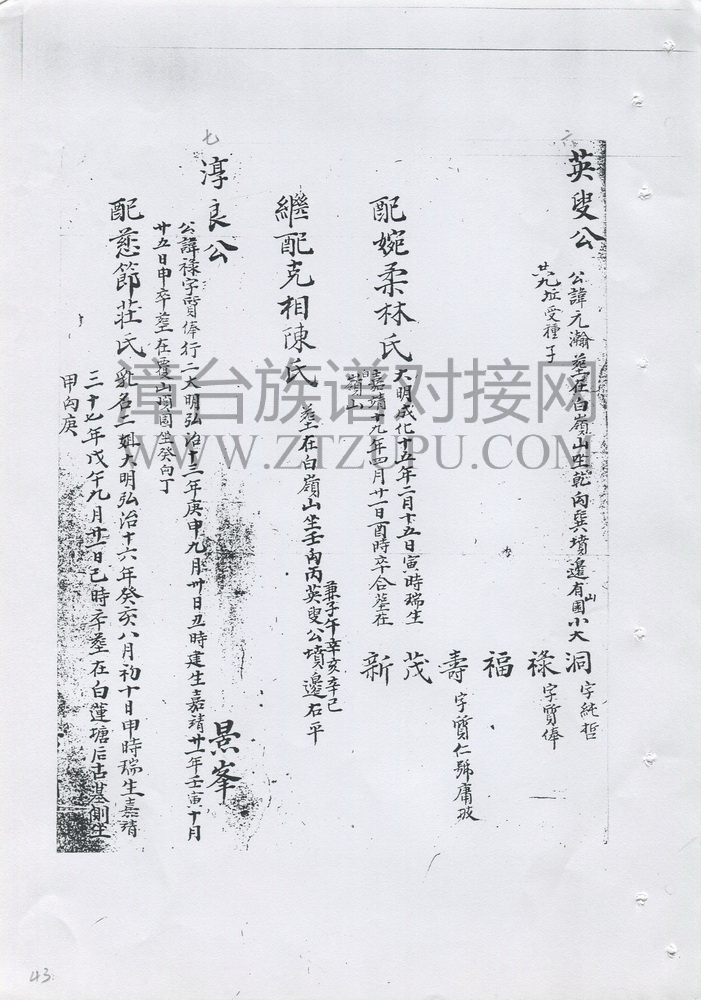 六
英叟公
公諱元瀚葬在白嶺山坐乾向巽墳邊有山園小大
廿九坵受種子
洞
字純哲
祿
字質俸
福
壽
字質仁號庸玻
茂
新
配婉柔林氏
大明成化十五年二月十五日寅時瑞生
嘉靖十九年四月廿一日酉時卒合葬在
白嶺山
繼配克相陳氏
葬在白嶺山坐壬向丙英叟公墳邊右平
兼子午辛亥辛巳
七
淳良公
公諱祿字質俸行二大明弘治十三年庚申九月卅日丑時建生嘉靖廿一年壬寅十月
廿五日申卒葬在覆山頭園坐癸向丁
景峯
配慈節莊氏
乳名二姐大明弘治十六年癸亥八月初十日甲時瑞生嘉靖
三十七年戊午九月廿一日巳時卒葬在白蓮塘后古墓側坐
甲向庚
漳台族谱对接网
WWW.ZTZUPU.COM
43.